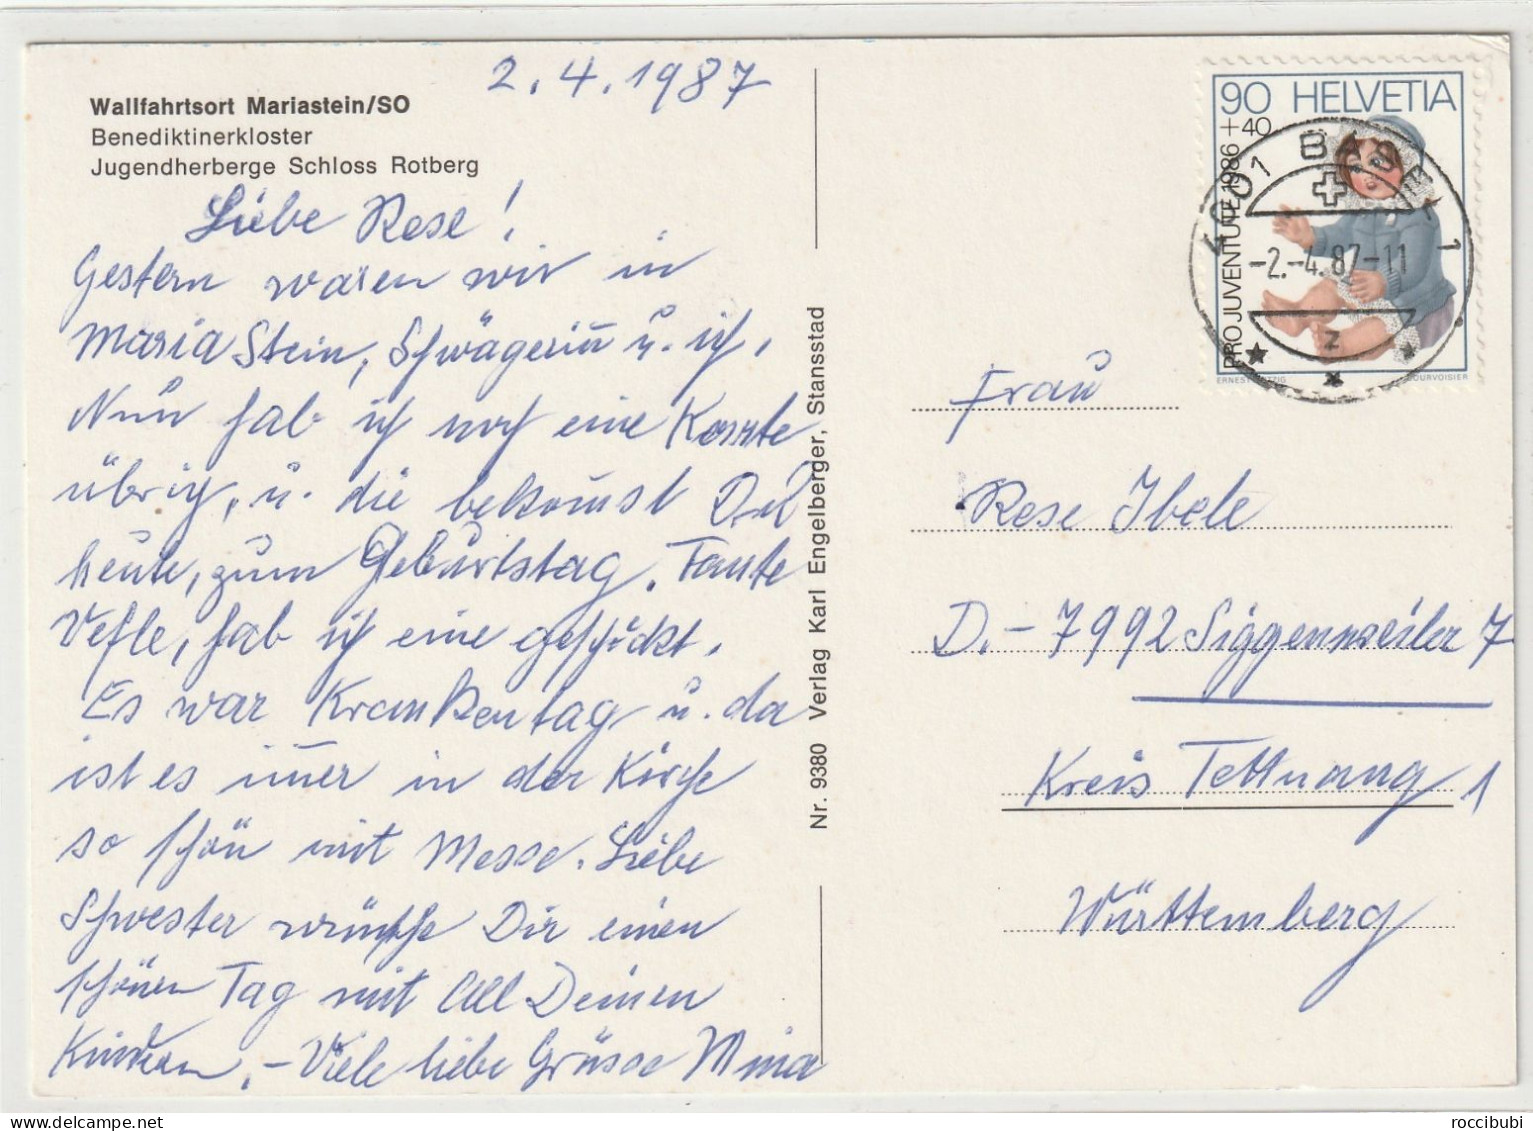 2.4.1987
Wallfahrtsort Mariastein/SO
Benediktinerkloster
Jugendherberge Schloss Rotberg
Liebe Rese!
Gestern waren wir in
Maria Stein, Schwägerin u. ich.
Nun hab ich noch eine Karte
übrig, u. die bekomst Du
heute, zum Geburtstag. Tante
Vefle, hab ich eine geschickt.
Es war Krankentag u. da
ist es imer in der Kirche
so schön mit Messe. Liebe
Schwester wünsche Dir einen
schönen Tag mit All Deinen
Kindern. - Viele liebe Grüsse Mina
Nr. 9380 Verlag Karl Engelberger, Stansstad
90 HELVETIA
+40
PRO JUVENTUTE 1986
COURVOISIER
4001 BASEL 1
-2.-4.87-11
Z
Frau
Rese Ibele
D.-7992 Siggenweiler 7
Kreis Tettnang 1
Württemberg
roccibubi